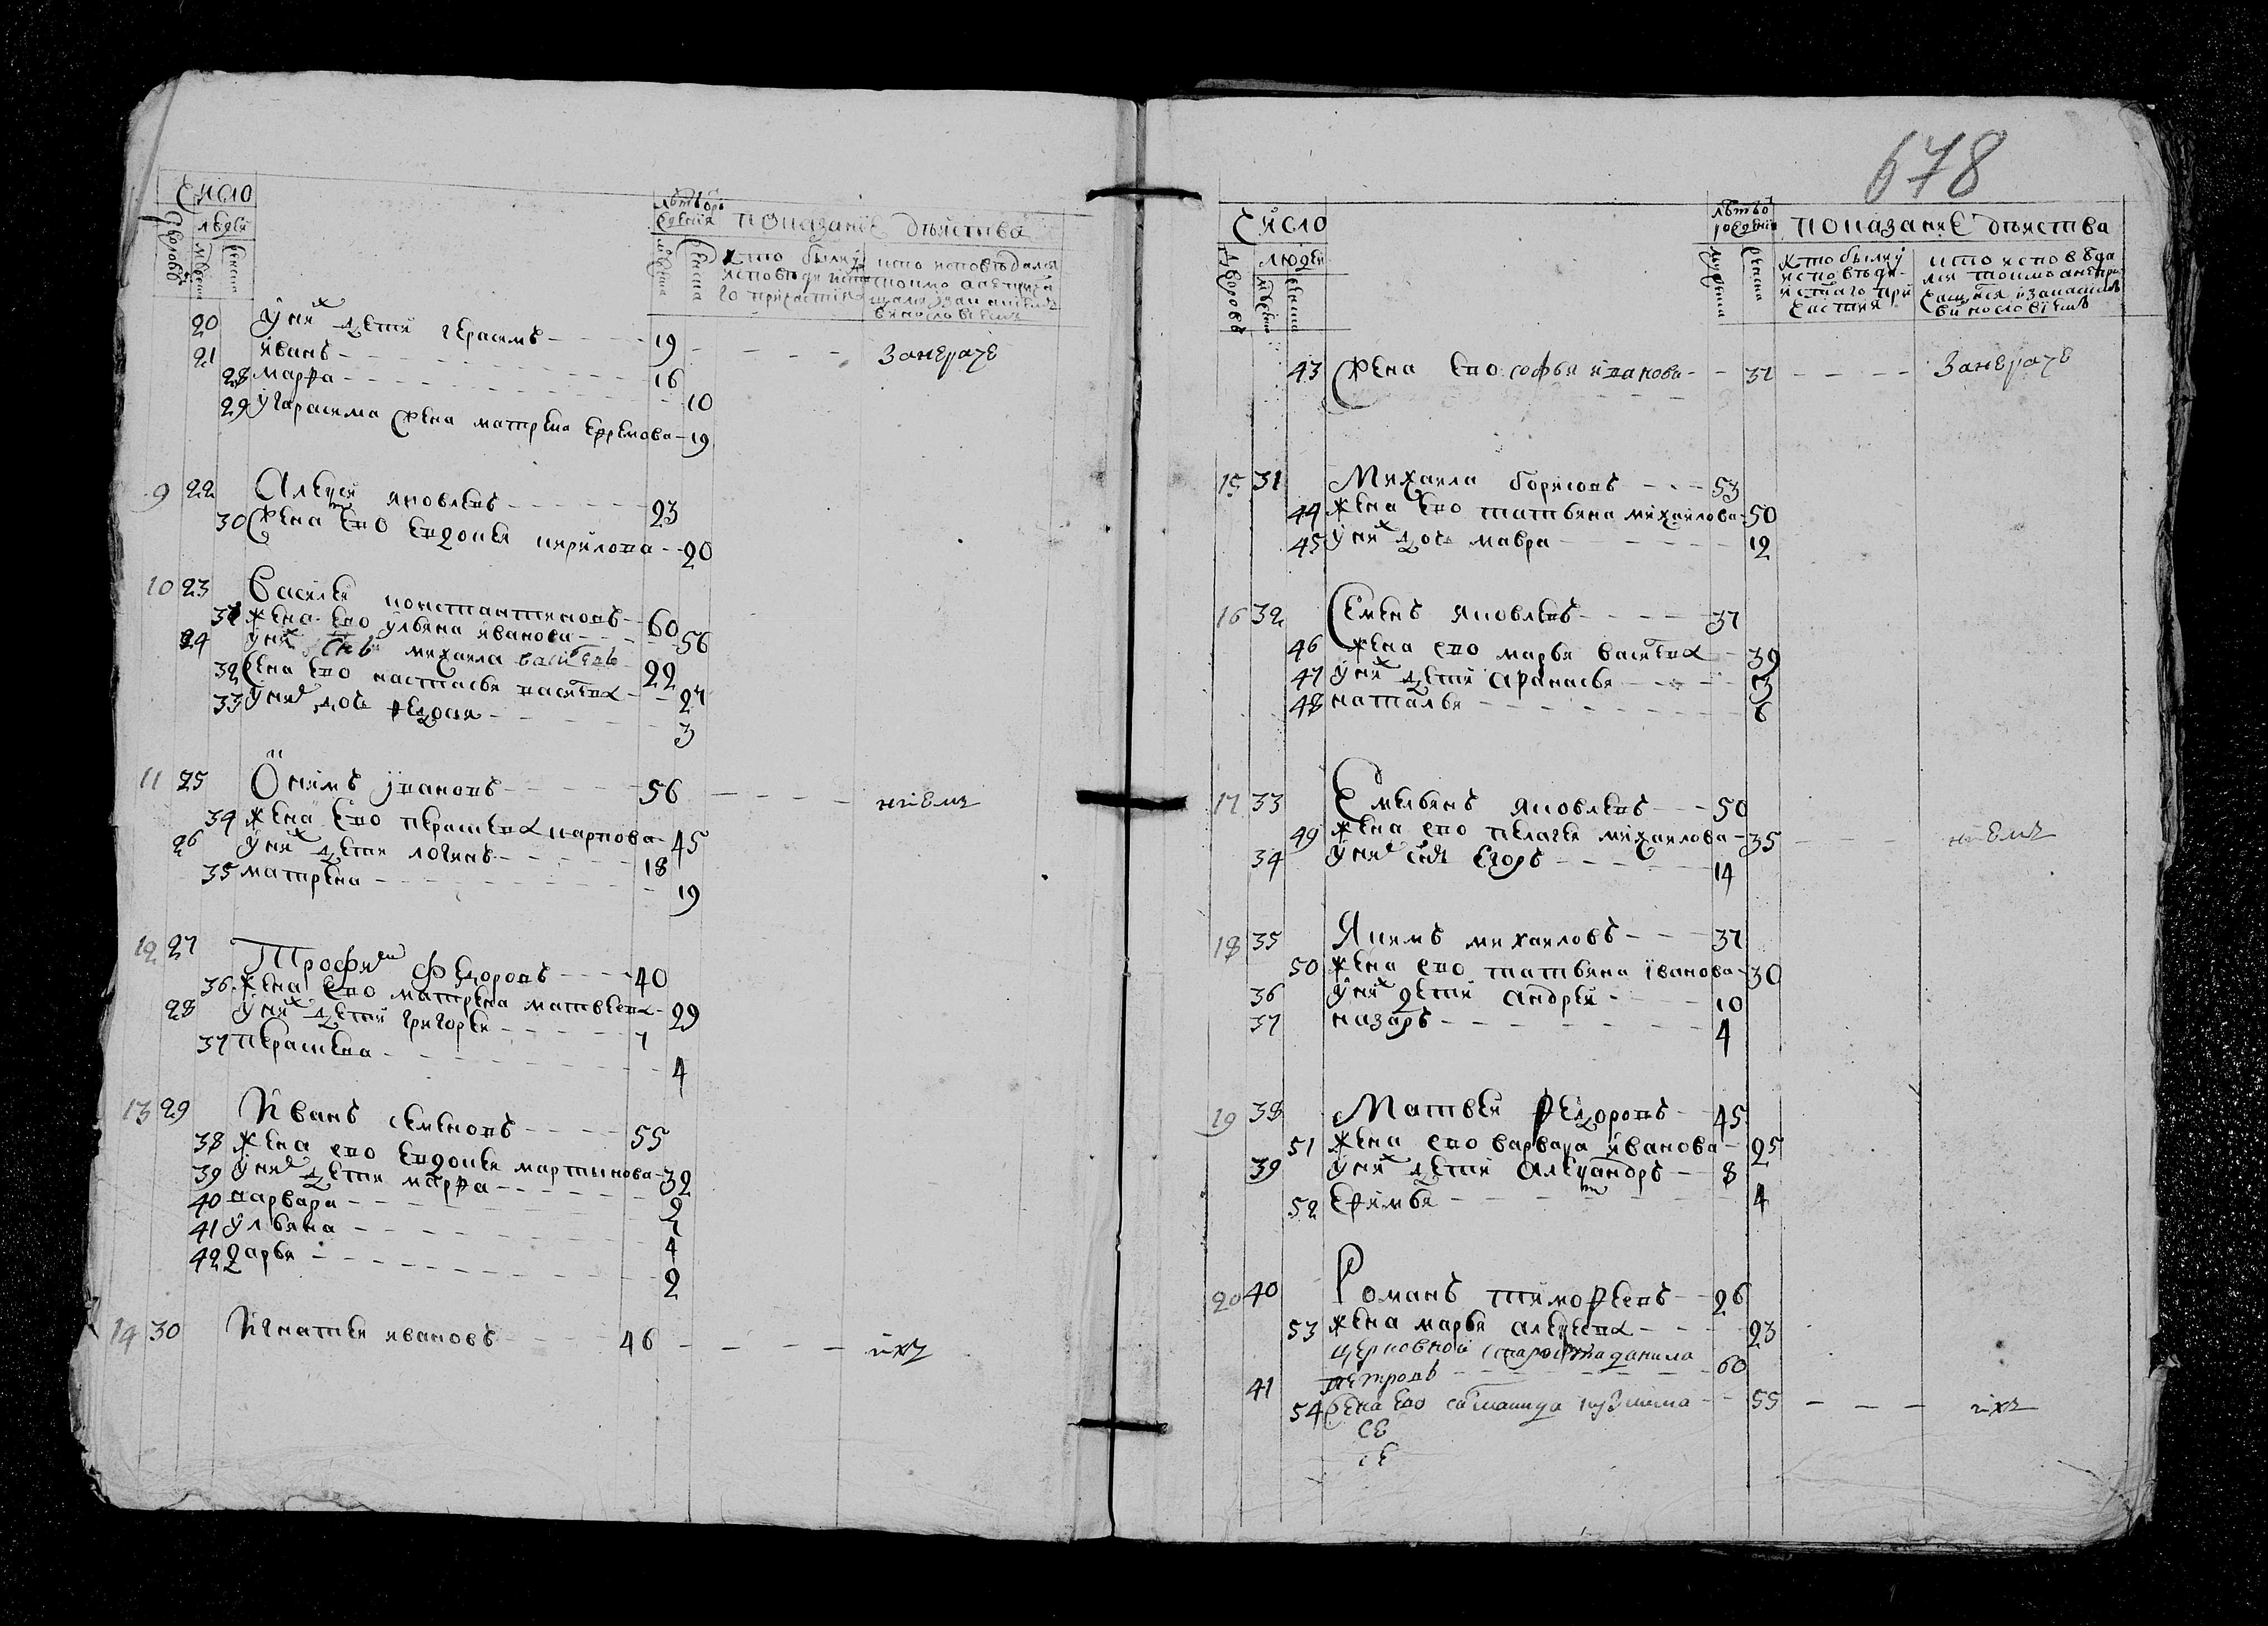 Число
людей
дворовъ
мужеска
женска
лѣтъ отъ рождения
мужеска
женска
показание действа
кто былъ у исповеди и святаго причастия
кто исповѣдался токмо а не причащался и за какимъ винословиемъ
20 у них дети герасимъ 19 занерачe
21 иванъ 16
28 марфа 10
29 у гарасима жена матрена ефремова 19
9 22 Алексей яковлевъ 23
30 жена ево евдокия кирилова 20
10 23 Василеи константиновъ 60
31 жена ево ульяна иванова 56
24 у них снъ михаила василевъ 22
32 жена ево настасья васильева 27
33 у них дочь федося 3
11 25 Якимъ ивановъ 56
34 жена ево парасковя карпова 45
26 у них дети логинъ 18
35 матрена 19
12 27 Трофимъ федоровъ 40
36 жена ево матрена матвеева 29
28 у них дети григореи 7
37 парасковя 4
13 29 Иванъ семеновъ 55
38 жена ево евдокея мартынова 32
39 у них дети марфа 9
40 варвара 7
41 ульяна 4
42 дарья 2
14 30 Игнатеи ивановъ 46
678
Число
людей
дворовъ
мужеска
женска
лѣтъ от рождения
мужеска
женска
показание действа
кто былъ у исповѣди и святаго причастия
кто исповѣдался токмо а не причащался и за какимъ винословиемъ
43 жена ево софья иванова 37 занерачe
15 31 Михаила борисовъ 53
44 жена ево татьяна михаилова 50
45 у них дочь мавра 12
16 32 Семенъ яковлевъ 37
46 жена ево марья васильева 39
47 у них дети афанасья 13
48 наталья 6
17 33 Емельянъ яковлевъ 50
49 жена ево пелагея михаилова 35
34 у них снъ егоръ 14
18 35 Якимъ михаиловъ 37
50 жена ево татьяна иванова 30
36 у них дети андреи 10
37 назаръ 4
19 38 Матвеи федоровъ 45
51 жена ево варвара иванова 25
39 у них дети александръ 8
52 ефимья 4
20 40 Романъ тимофеевъ 26
53 жена марья алексеева 23
церковной староста данила
41 петровъ 60
54 жена ево кузмина 55
се
се